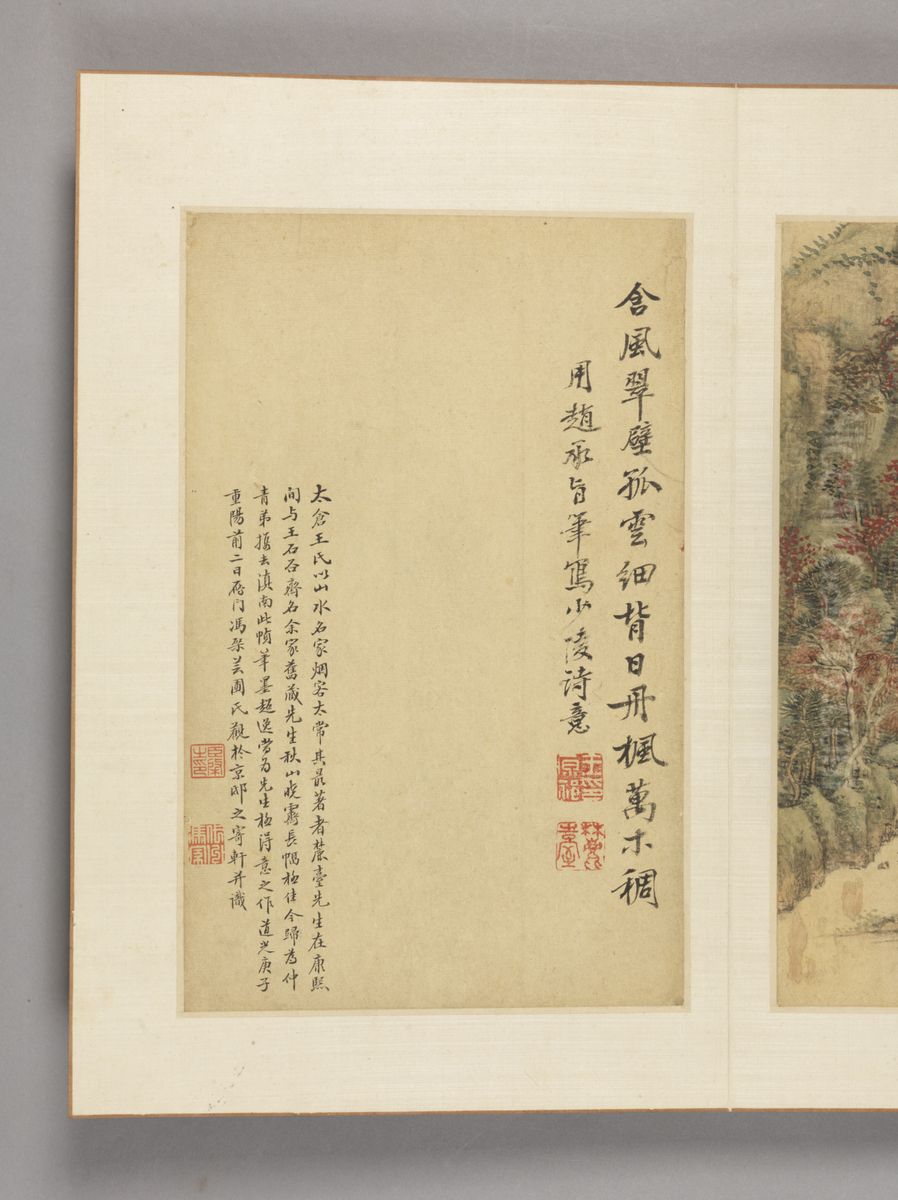 含風翠壁孤雲細背日丹楓萬木稠
用趙承旨筆寫少陵詩意
王原祁印
麓臺
太倉王氏以山水名家烟客太常其最著者麓臺先生在康熙
间与王石谷齊名余家舊藏先生秋山晚霽長幅極佳今歸為仲
青弟攜去滇南此幀筆墨超逸當為先生極得意之作道光庚子
重陽前二日 门馮 美圃氏觀於京邸之寄軒并識